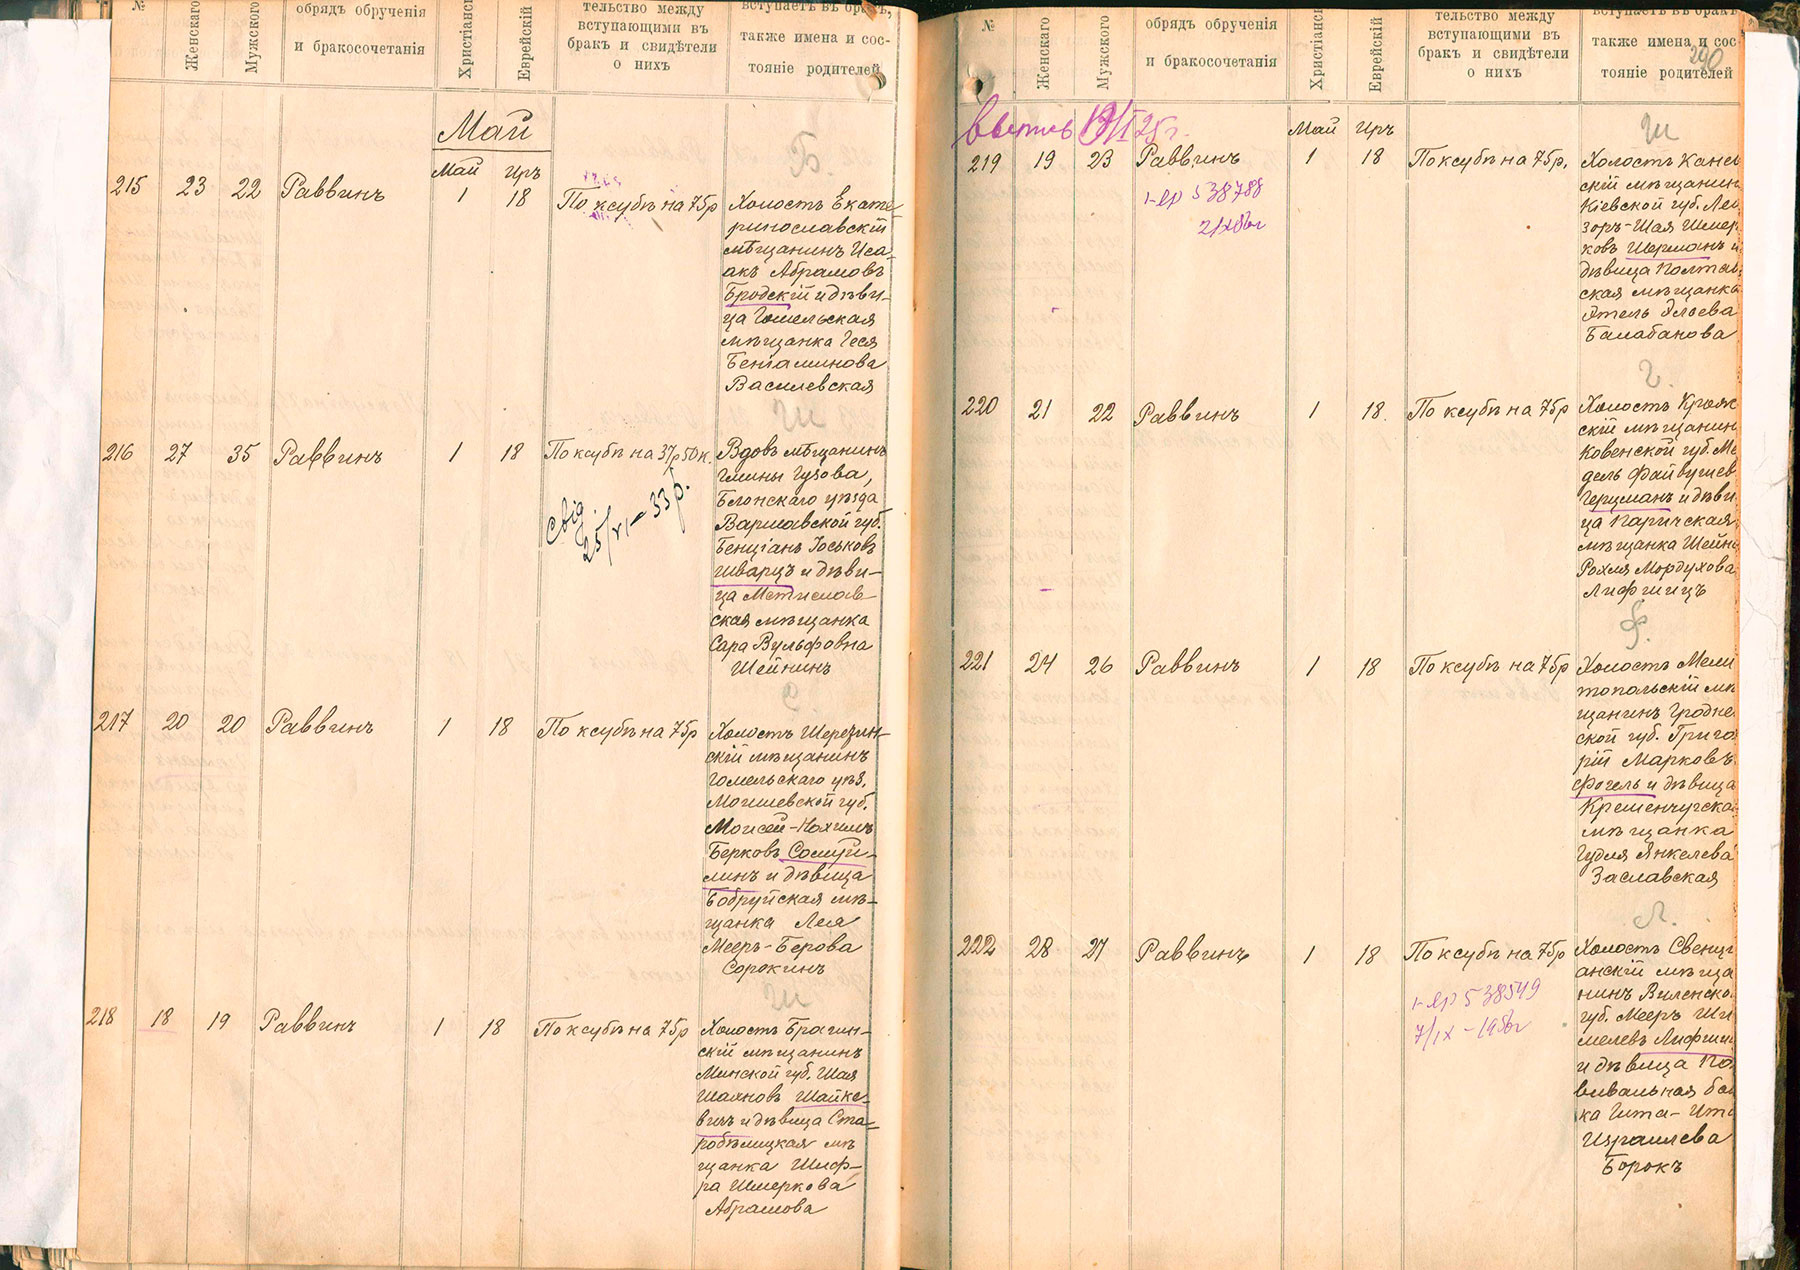 №
Женскаго
Мужского
обрядъ обрученія
и бракосочетанія
Христіанс
Еврейскій
тельство между
вступающими въ
бракъ и свидѣтели
о нихъ
вступаетъ въ бракъ,
также имена и сос-
тояніе родителей
Май
Май Иръ
Б.
215 23 22 Раввинъ 1 18 По ксубѣ на 75р
Холостъ Екате-
ринославскій
мѣщанинъ Иса-
акъ Абрамовъ
Бродскій и дѣви-
ца Гомельская
мѣщанка Геся
Беньяминова
Василевская
Ш
216 27 35 Раввинъ 1 18 По ксубѣ на 37р50к.
свід
25/VI – 33 р.
Вдовъ мѣщанинъ
Гмины Гузова,
Блонскаго уѣзда
Варшавской губ.
Бенціанъ Іоськовъ
Шварцъ и дѣви-
ца Мстислав
ская мѣщанка
Сара Вульфовна
Шейнинъ
С.
217 20 20 Раввинъ 1 18 По ксубѣ на 75р
Холостъ
скій мѣщанинъ
Гомельскаго уѣз.
Могилевской губ.
Моисей-Нохимъ
Берковъ
линъ и дѣвица
Бобруйская мѣ-
щанка Лея
Мееръ-Берова
Сорокинъ
Ш
218 18 19 Раввинъ 1 18 По ксубѣ на 75р
Холостъ Брагин-
скій мѣщанинъ
Минской губ. Шая
Шаяновъ Шайке-
вичъ и дѣвица Ста-
робѣлицкая мѣ
щанка Шиф-
ра Шмеркова
Абрамова
№
Женскаго
Мужского
обрядъ обрученія
и бракосочетанія
Христіанс
Еврейскій
тельство между
вступающими въ
бракъ и свидѣтели
о нихъ
вступаетъ въ бракъ
также имена и сос-
тояніе родителей
290
19/I 25г.
Май Иръ
Ш
219 19 23 Раввинъ 1 18 По ксубѣ на 75р.
538788
Холостъ Канев
скій мѣщанин
Кіевской губ. Лей
зоръ-Шая Шмер
ковъ Шерманъ и
дѣвица Полтав
ская мѣщанка
Этель Элаева
Балабанова
Г.
220 21 22 Раввинъ 1 18 По ксубѣ на 75р
Холостъ Крож
скій мѣщанин
Ковенской губ. Ме
дель Файвушев
Герцманъ и дѣви
ца Паричская
мѣщанка Шейн
Рохля Мордухова
Лифшицъ
Ф.
221 24 26 Раввинъ 1 18 По ксубѣ на 75р
Холостъ Мели
топольскій мѣ
щанинъ Гродне
ской губ. Григо
рій Марковъ
Фогель и дѣвица
Кременчугска
мѣщанка
Гудля Янкелева
Заславская
Л.
222 28 27 Раввинъ 1 18 По ксубѣ на 75р
538549
7/IX – 1956г
Холостъ Свенці
анскій мѣща
нинъ Виленско
губ. Мееръ Ши
мелевъ Лифши
и дѣвица По
вивальная баб
ка Гита-Ита
Израилева
Борокъ